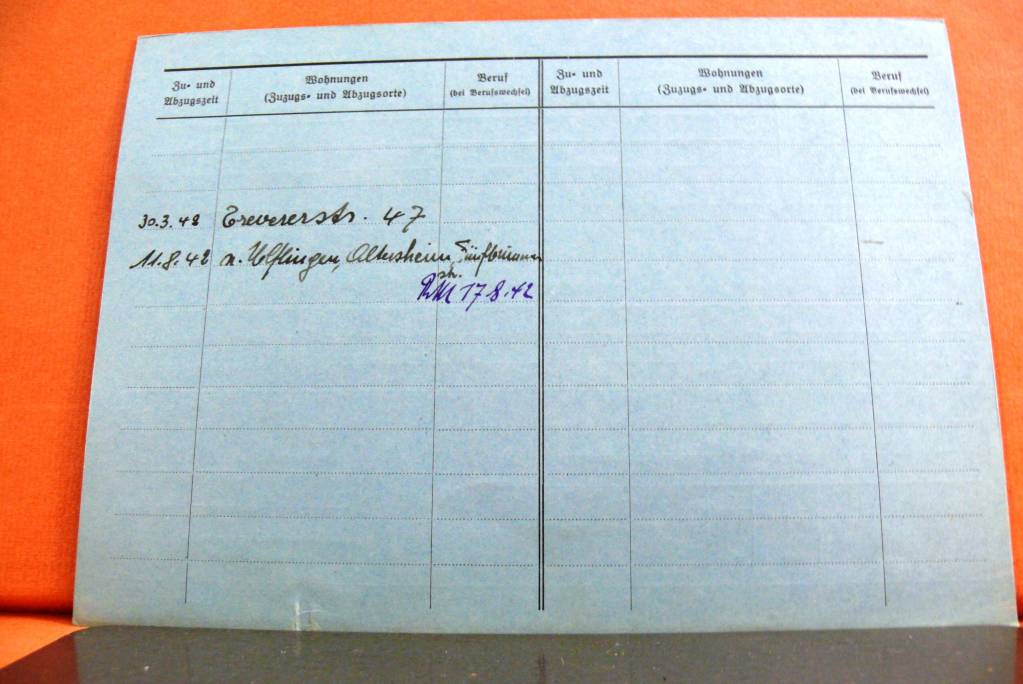 Zu- und Abzugszeit
Wohnungen
(Zuzugs- und Abzugsorte)
Beruf
(bei Berufswechsel)
Zu- und Abzugszeit
Wohnungen
(Zuzugs- und Abzugsorte)
Beruf
(bei Berufswechsel)
30.3.42 Trevererstr. 47
11.8.42 n. Ulflingen, Altersheim, Fünfbrunnen
17 8.42